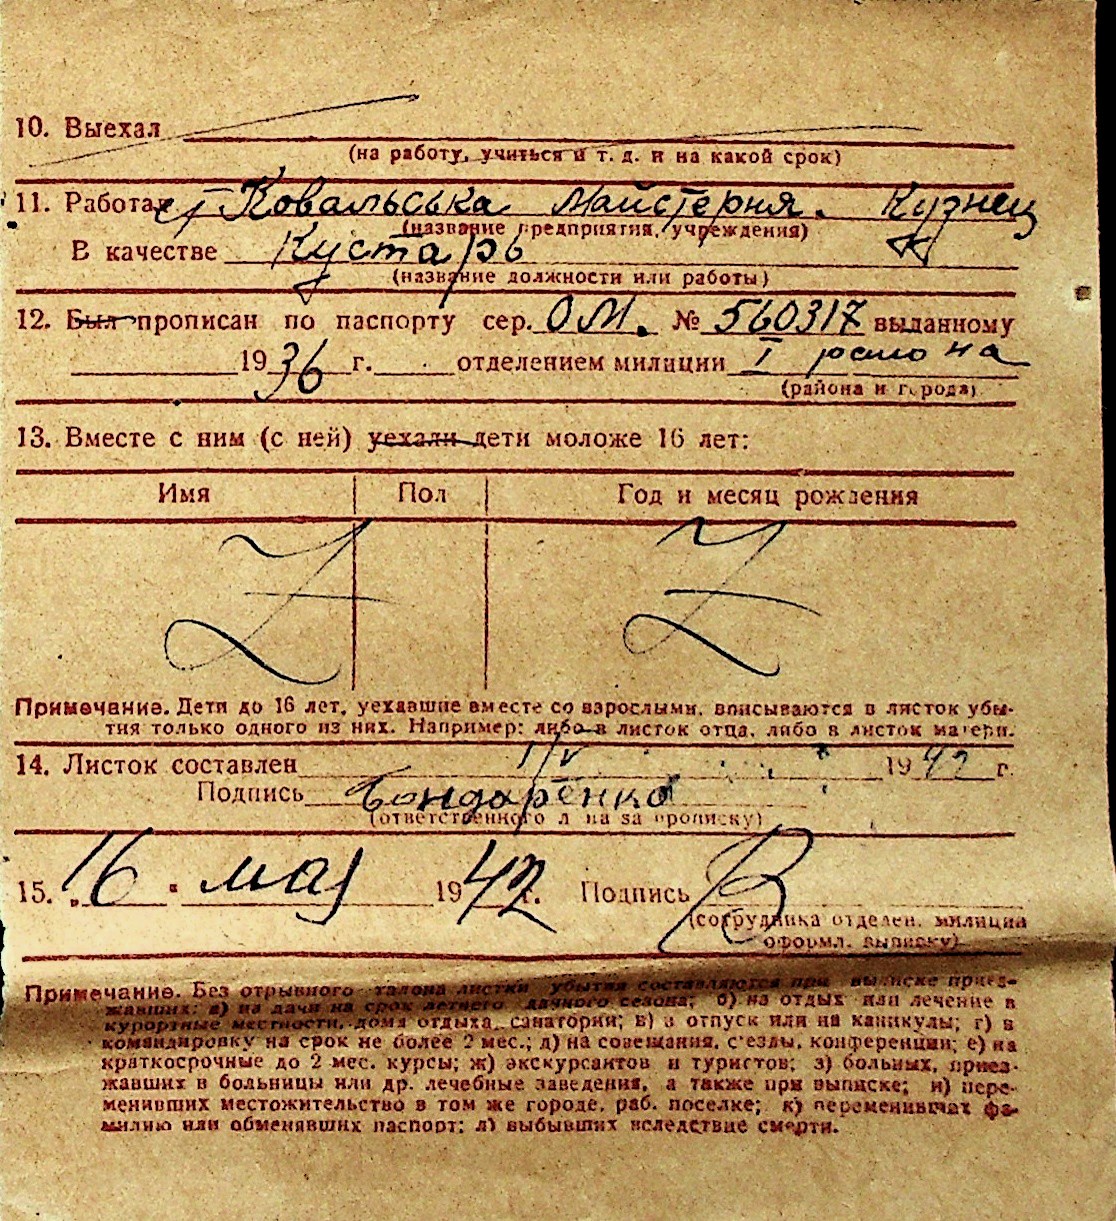 10. Выехал
(на работу, учиться и т. д. и на какой срок)
11. Работает Ковальська Майстерня. Кузнец
(название предприятия, учреждения)
В качестве Кустарь
(название должности или работы)
12. Был прописан по паспорту сер. ОМ. № 560317 выданному
1936 г. отделением милиции I района
(района и города)
13. Вместе с ним (с ней) уехали дети моложе 16 лет:
Имя Пол Год и месяц рождения
Z Z
Примечание. Дети до 16 лет, уехавшие вместе со взрослыми, вписываются в листок убы-
тия только одного из них. Например: либо в листок отца, либо в листок матери.
14. Листок составлен 1/V 1942 г.
Подпись Бондаренко
(ответственного л на за прописку)
15. „16 " мая 1942 г. Подпись
(сотрудника отделен. милиции
оформл. выписку)
Примечание. Без отрывного талона листки убытия составляются при выписке приез-
жавших: а) на дачи на срок летнего дачного сезона; б) на отдых или лечение в
курортные местности, дома отдыха, санатории; в) в отпуск или на каникулы; г) в
командировку на срок не более 2 мес.; д) на совещания, с'езды, конференции; е) на
краткосрочные до 2 мес. курсы; ж) экскурсантов и туристов; з) больных, приез-
жавших в больницы или др. лечебные заведения, а также при выписке; и) пере-
менивших местожительство в том же городе, раб. поселке; к) переменивших фа-
милию или обменявших паспорт; л) выбывших вследствие смерти.